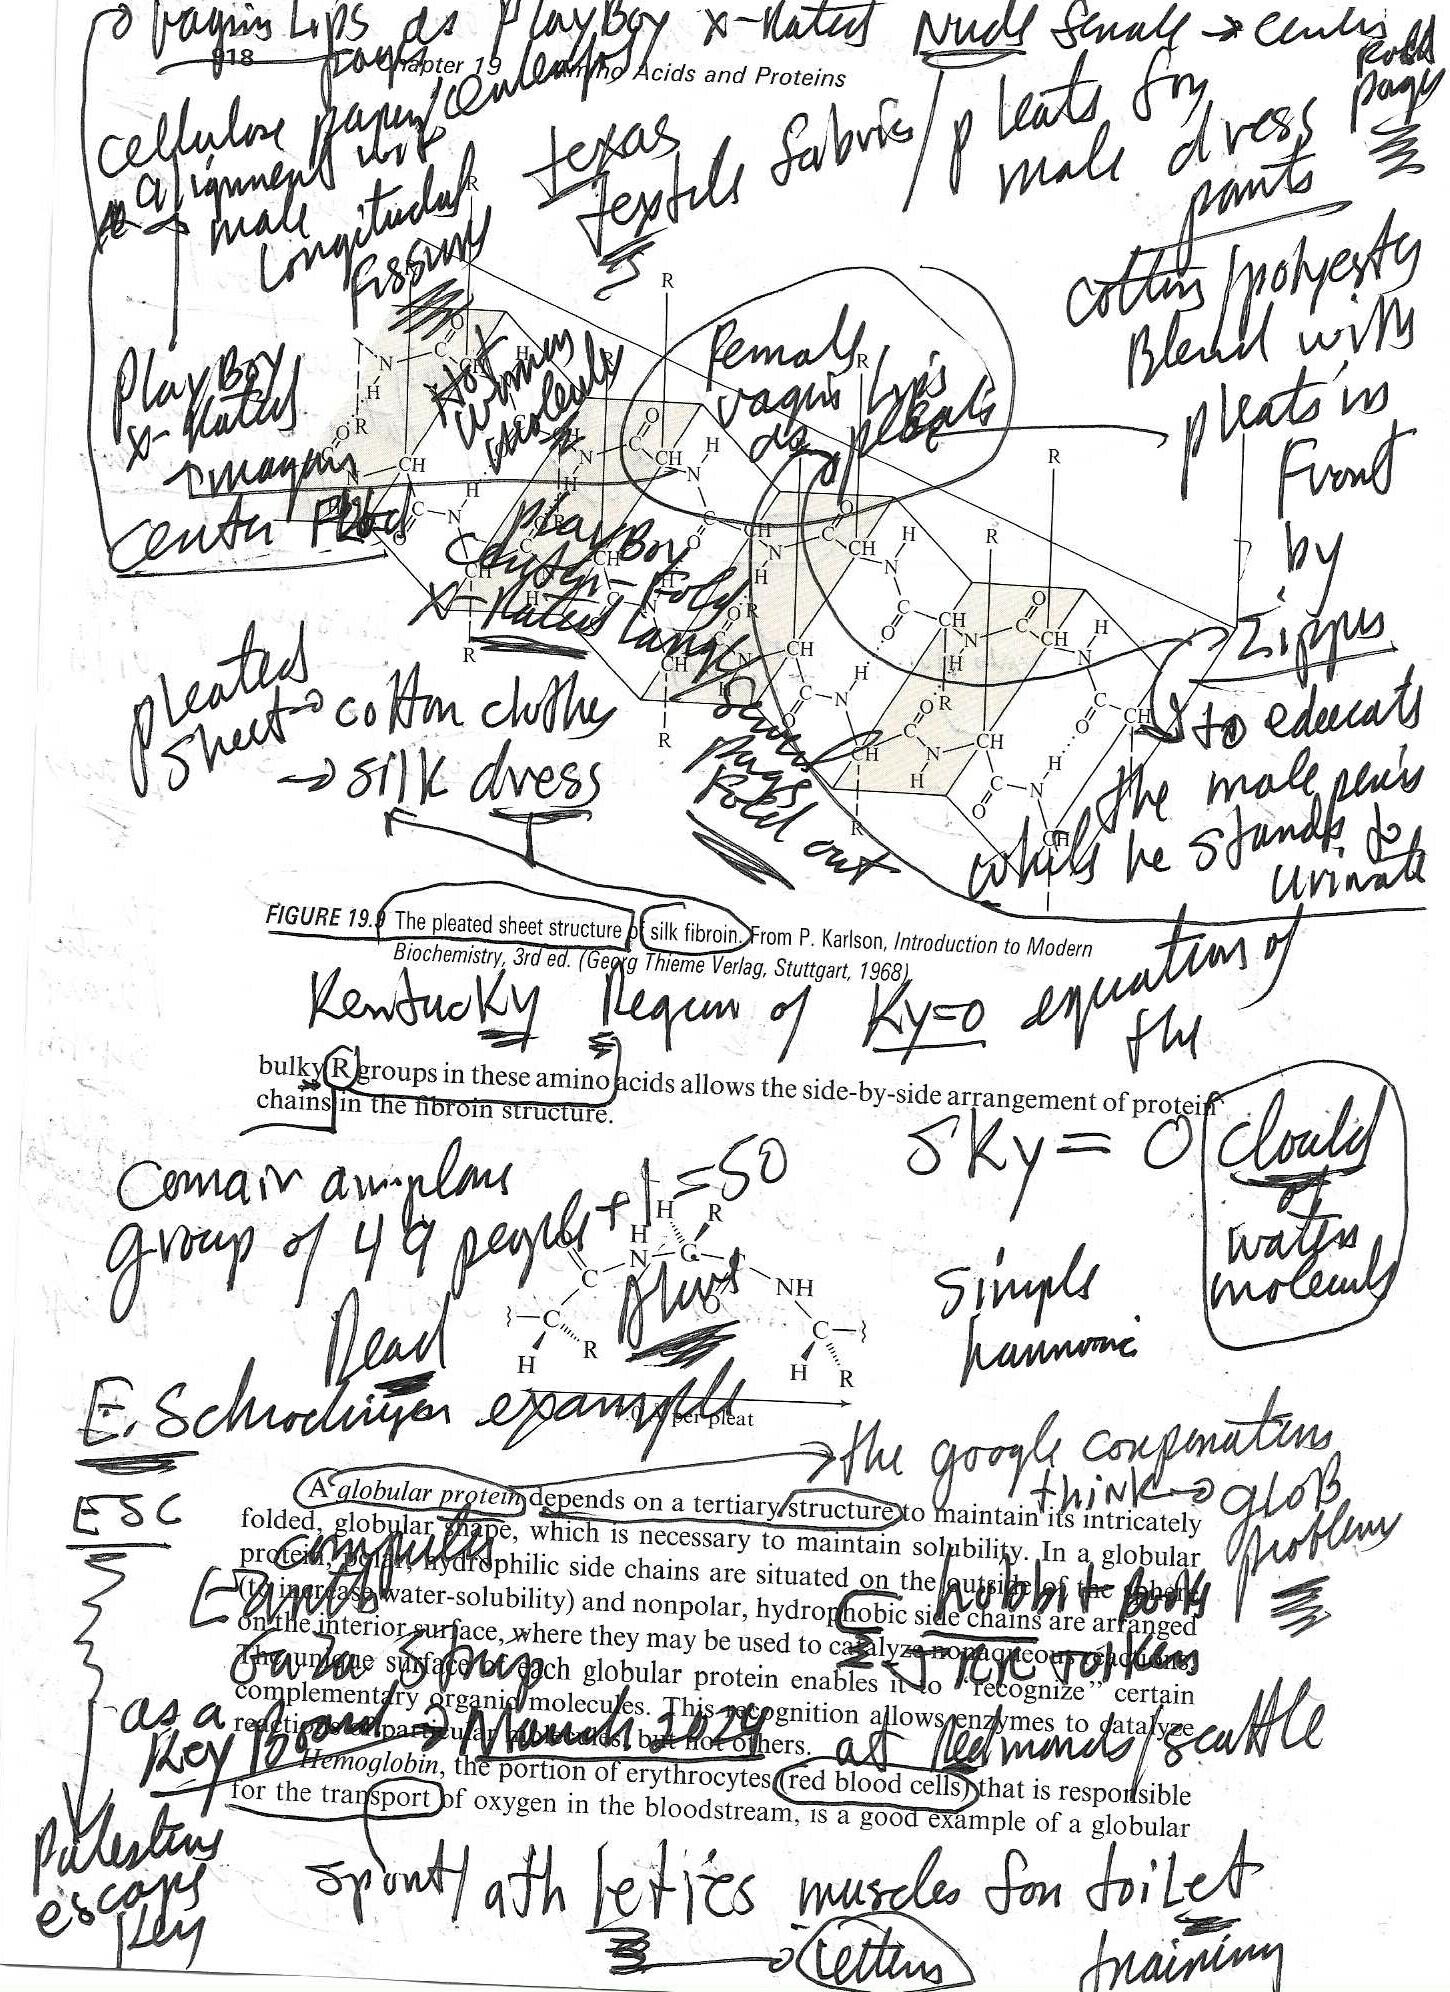 vagina Lips as PlayBoy x-Rated Nude female → center
fold
page
918 Chapter 19 Amino Acids and Proteins
cellulose paper/
alignment
male
longitudal
fissure
texas
textile fabric/pleats for
male dress
pants
cotton/polyester
Blend with
pleats in
Front
by
Zipper
to educate
the male penis
while he stands to
urinate
PlayBoy
x-Rated
magazin
center Fold
Hot
women
molecule
Female
vagina lips
as pleats
PlayBoy
Center-Fold
x-Rated large
page
Fold out
pleated
sheet → cotton clothes
→ silk dress
FIGURE 19.9 The pleated sheet structure of silk fibroin. From P. Karlson, Introduction to Modern
Biochemistry, 3rd ed. (Georg Thieme Verlag, Stuttgart, 1968).
Kentucky Region of Ky=0 equation of
the
bulky R groups in these amino acids allows the side-by-side arrangement of protein
chains in the fibroin structure.
δKy = 0
cloud
of
water
molecule
group of 49 people + 1 = 50
simple
harmonic
Dead
E. Schrodinger example
per pleat
the google corporation
think → gloB
problem
ESC
A globular protein depends on a tertiary structure to maintain its intricately
folded, globular shape, which is necessary to maintain solubility. In a globular
protein, polar, hydrophilic side chains are situated on the outside of the sphere
(to increase water-solubility) and nonpolar, hydrophobic side chains are arranged
on the interior surface, where they may be used to catalyze nonaqueous reactions.
The unique surface of each globular protein enables it to “recognize” certain
complementary organic molecules. This recognition allows enzymes to catalyze
reactions of particular molecules, but not others.
Hemoglobin, the portion of erythrocytes (red blood cells) that is responsible
for the transport of oxygen in the bloodstream, is a good example of a globular
computer
Earth
Gaza strip
as a
Key Board → March 2024
hobbit Books
at Redmond/seattle
Palestine
escape
Key
sport/athletics muscles for toiLet
training
letters